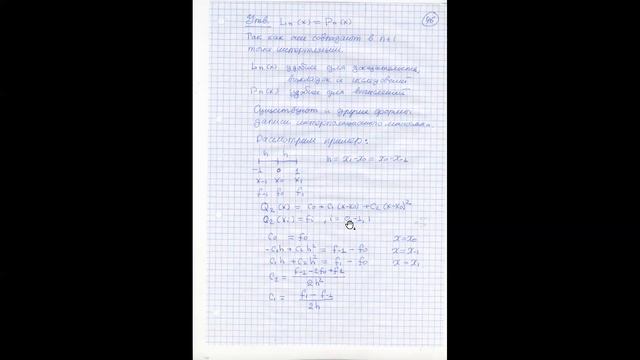 45
Утв. Ln(x) = Pn(x)
Так как они совпадают в n+1
точке интерполяции.
Ln(x) удобен для доказательств,
выкладок и исследований
Pn(x) удобен для вычислений
Существуют и другие формы
записи интерполяционного многочлена.
Рассмотрим пример:
h h h = x1-x0 = x0-x-1
-1 0 1
x-1 x0 x1
f-1 f0 f1
Q2(x) = c0 + c1(x-x0) + c2(x-x0)²
Q2(xi) = fi , i = 0,-1,1
c0 = f0 x=x0
-c1h + c2h² = f-1 - f0 x=x-1
c1h + c2h² = f1 - f0 x=x1
c2 = f-1-2f0+f1 / 2h²
c1 = f1-f-1 / 2h